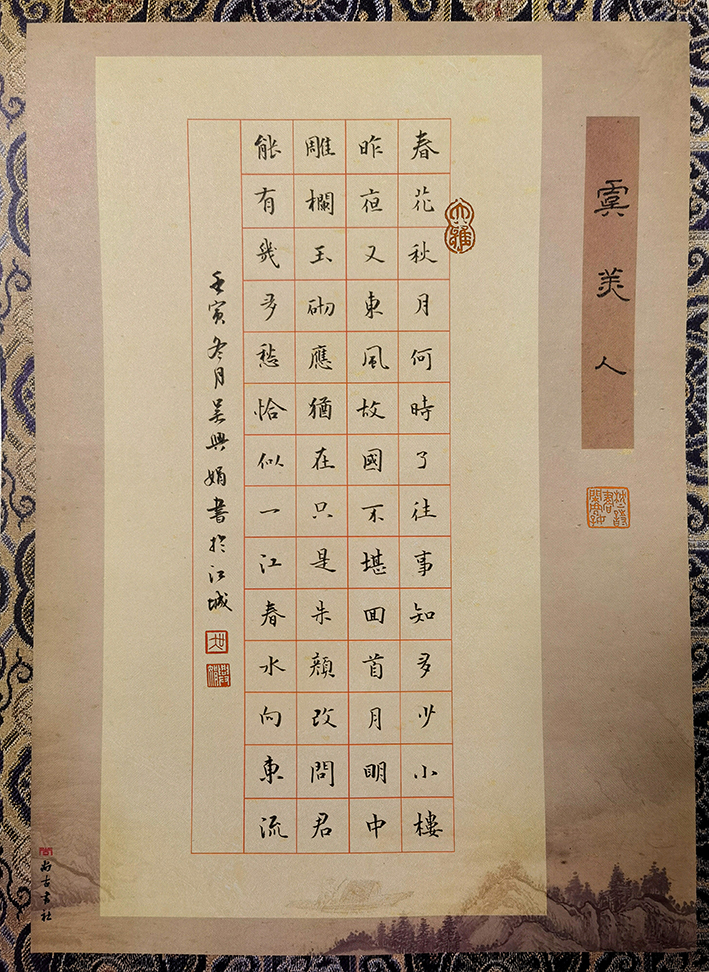 虞美人
春花秋月何時了往事知多少小樓
昨夜又東風故國不堪回首月明中
雕欄玉砌應猶在只是朱顏改問君
能有幾多愁恰似一江春水向東流
壬寅冬月吳興娟書於江城
大雅
尚古書社